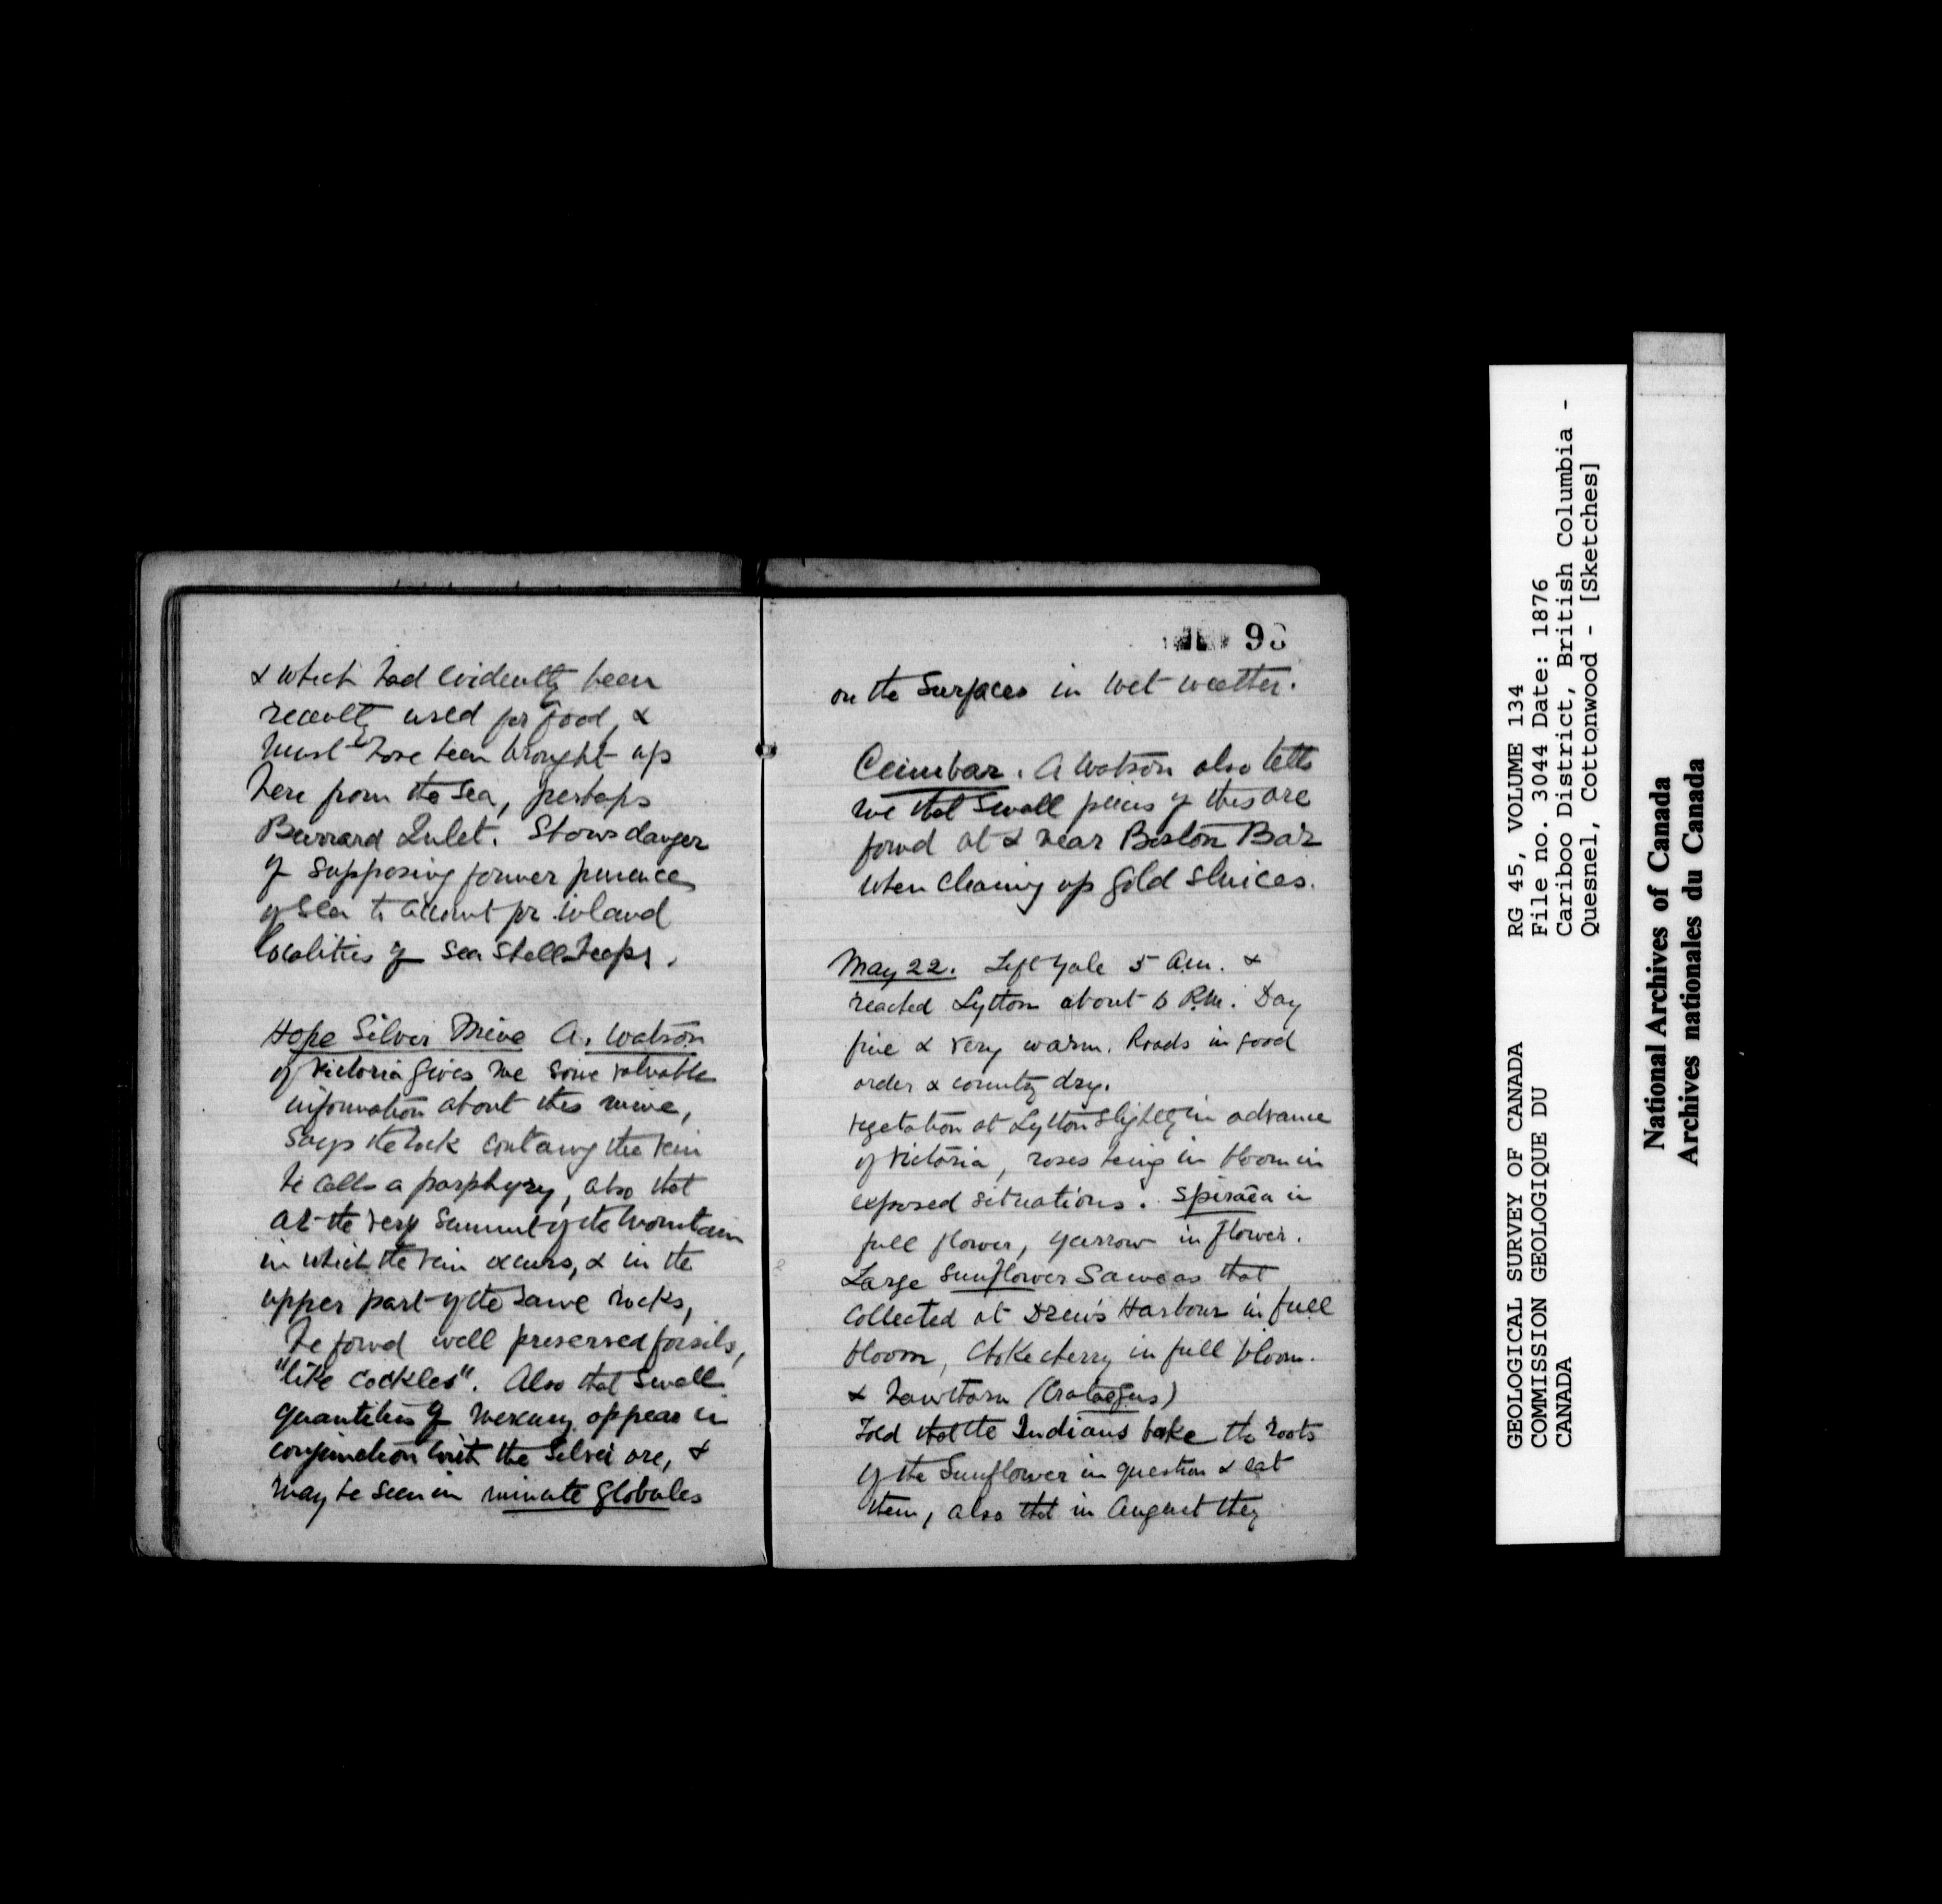 & which had evidently been
recently used for food, &
must have been brought up
here from the sea, perhaps
Burrard Inlet. Shows danger
of supposing former presence
of sea to account for inland
localities of sea shell heaps.
Hope Silver Mine A. Watson
of Victoria gives me some valuable
information about this mine,
says the rock containg the vein
he calls a porphyry, also that
at the very summit of the mountain
in which the vein occurs, & in the
upper part of the same rocks,
he found well preserved fossils,
"like cockles". Also that small
quantities of mercury appear in
conjunction with the silver ore, &
may be seen in minute globules
9
on the surfaces in wet weather.
Cinnbar. A Watson also tells
me that small pieces of this are
found at & near Boston Bar
when cleaning up gold sluices.
May 22. Left Yale 5 A.m. &
reached Lytton about 6 P.M. Day
fine & very warm. Roads in good
order & country dry.
Vegetation at Lytton slightly in advance
of Victoria, roses being in bloom in
exposed situations. Spiraea in
full flower, yarrow in flower.
Large sunflower same as that
collected at Drew's Harbour in full
bloom, Choke cherry in full bloom.
& hawthorn (Crataegus)
Told that the Indians bake the roots
of the Sunflower in question & eat
them, also that in August they
GEOLOGICAL SURVEY OF CANADA
COMMISSION GEOLOGIQUE DU
CANADA
RG 45, VOLUME 134
File no. 3044 Date: 1876
Cariboo District, British Columbia -
Quesnel, Cottonwood - [Sketches]
National Archives of Canada
Archives nationales du Canada